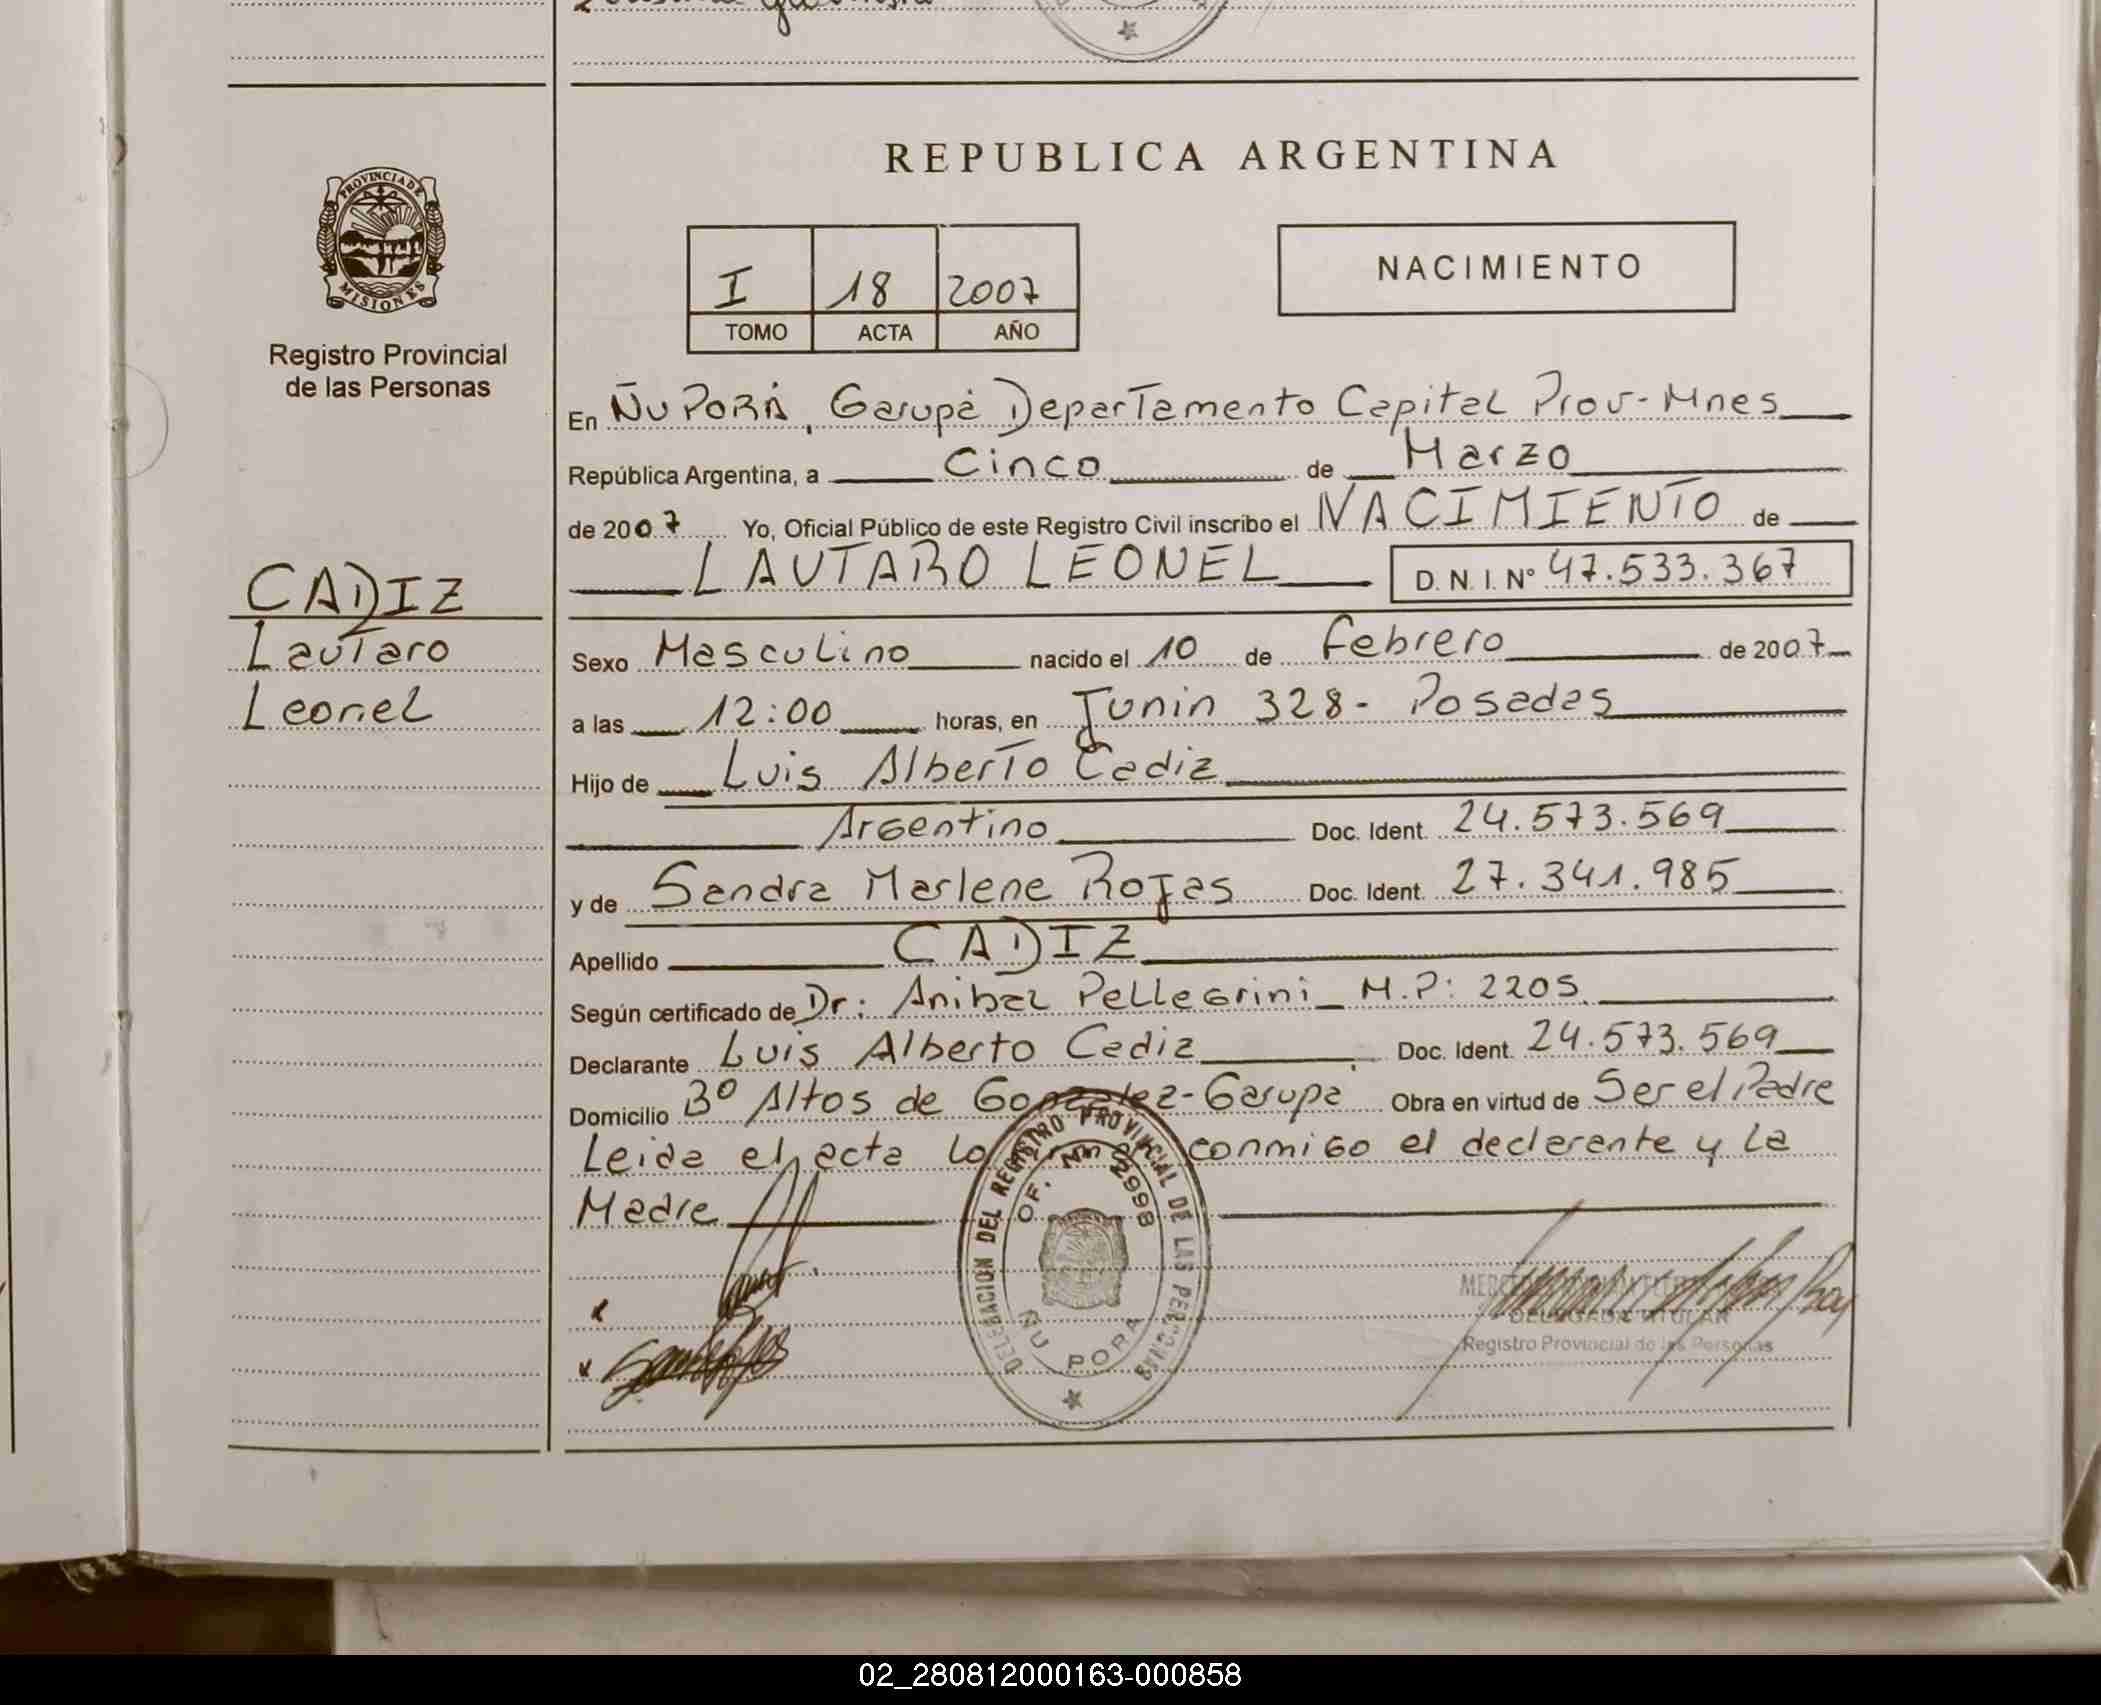 REPUBLICA ARGENTINA
PROVINCIA DE
MISIONES
Registro Provincial
de las Personas
I 18 2007
TOMO ACTA AÑO
NACIMIENTO
En Ñu Porá, Garupá Departamento Capital Prov-Mnes
República Argentina, a Cinco de Marzo
de 2007 Yo, Oficial Público de este Registro Civil inscribo el NACIMIENTO de
LAUTARO LEONEL D.N.I. Nº 47.533.367
CADIZ
Lautaro
Leonel
Sexo Masculino nacido el 10 de Febrero de 2007
a las 12:00 horas, en Junin 328- Posadas
Hijo de Luis Alberto Cadiz
Argentino Doc. Ident. 24.573.569
y de Sandra Marlene Rojas Doc. Ident. 27.341.985
Apellido CADIZ
Según certificado de Dr: Anibal Pellegrini M.P: 2205
Declarante Luis Alberto Cadiz Doc. Ident. 24.573.569
Domicilio Bº Altos de Gonzalez-Garupá Obra en virtud de Ser el Padre
Leida el acta la conmigo el declarante y la
Madre
DELEGACION DEL REGISTRO PROVINCIAL DE LAS PERSONAS
ÑU PORA
DELEGADA TITULAR
Registro Provincial de las Personas
02_280812000163-000858